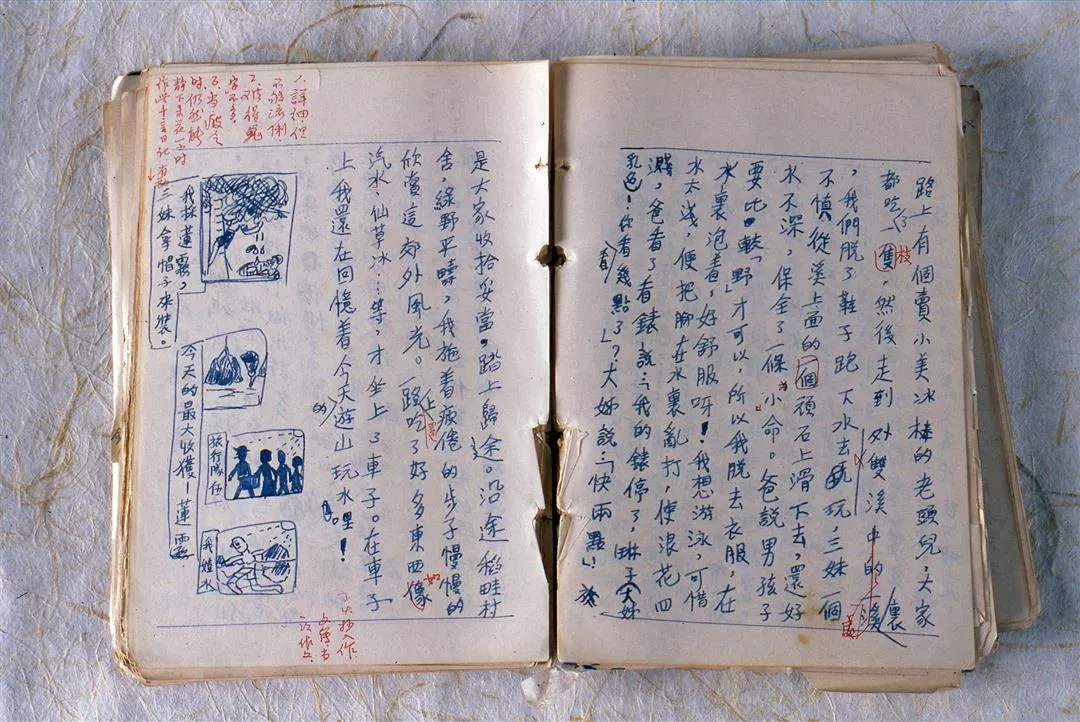 路上有個賣小美冰棒的老頭兒，大家
都吃了一隻，然後走到外雙溪中的溪裏
枝
，我們脫了鞋子跑下水去玩，三妹一個
不慎從溪上面的一個頑石上滑下去，還好
水不深，保全了一條小命。爸說男孩子
要比較「野」才可以，所以我脫去衣服，在
水裏泡着，好舒服呀！我想游泳，可惜
水太淺，便把腳在水裏亂打，使浪花四
濺，爸看了看錶說：「我的錶停了，琳子大姊
你看看幾點了」？大姊說：「快兩點！」
是大家收拾妥當。踏上歸途。沿途稻畦村
舍，綠野平疇，我拖着疲倦的步子慢慢的
欣賞這郊外風光。一路上吃了好多東西像
汽水、仙草冰…等，才坐上了車子。在車子
上我還在回憶着今天的遊山玩水哩！
1.詳細，但
不夠流俐
2.難得寃
字不多
3.當疲乏
時，仍然能
靜下來花一小时
作此千言日記，
我採蓮霧，
三妹拿帽子來裝。
今天的最大收獲－蓮霧
旅行隊伍
我游水